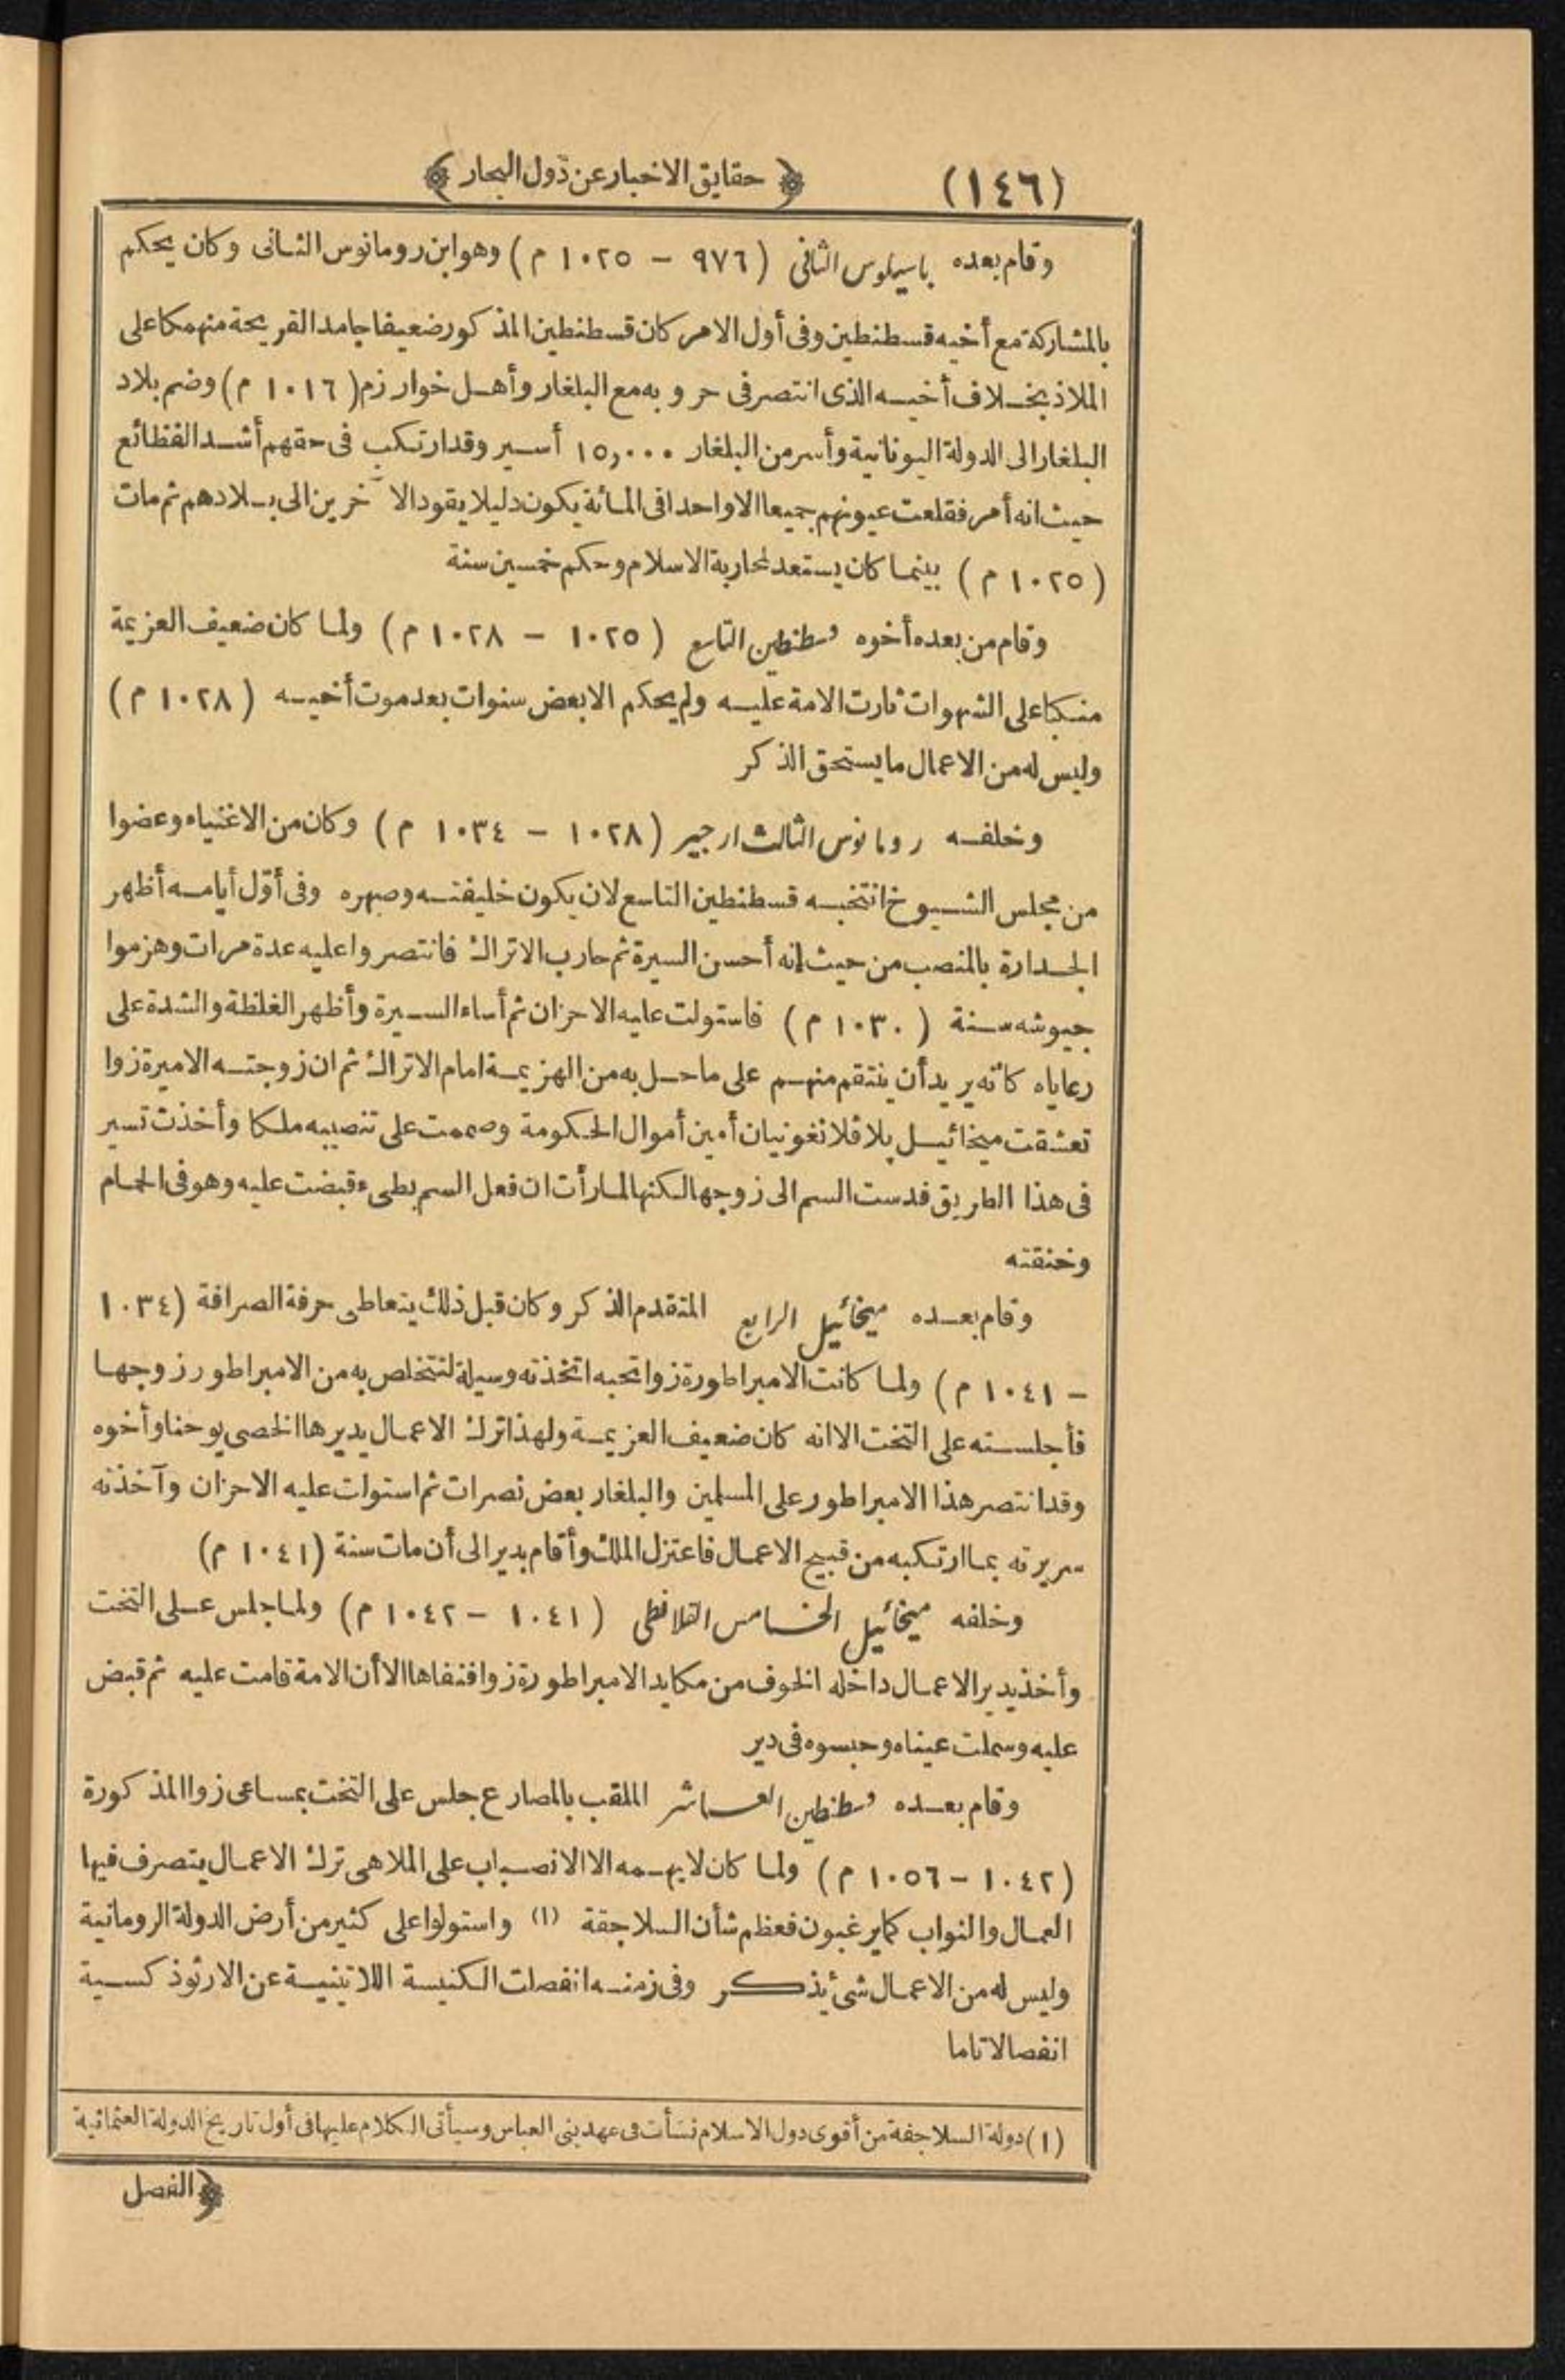 (١٤٦) ﴿ حقايق الاخبار عن دول البحار ﴾
وقام بعده باسيلوس الثانى (٩٧٦ – ١٠٢٥ م) وهو ابن رومانوس الثانى وكان يحكم
بالمشاركة مع أخيه قسطنطين وفى أول الامر كان قسطنطين المذكور ضعيفا جامد القريحة منهمكا على
الملاذ بخلاف أخيه الذى انتصر فى حروبه مع البلغار وأهل خوارزم (١٠١٦ م) وضم بلاد
البلغار الى الدولة اليونانية وأسر من البلغار ١٥,٠٠٠ أسير وقد ارتكب فى حقهم أشد الفظائع
حيث انه أمر فقلعت عيونهم جميعا الا واحدا فى المائة يكون دليلا يقود الآخرين الى بلادهم ثم مات
(١٠٢٥ م) بينما كان يستعد لمحاربة الاسلام وحكم خمسين سنة
وقام من بعده أخوه قسطنطين التاسع (١٠٢٥ – ١٠٢٨ م) ولما كان ضعيف العزيمة
منكبا على الشهوات ثارت الامة عليه ولم يحكم الا بعض سنوات بعد موت أخيه (١٠٢٨ م)
وليس له من الاعمال ما يستحق الذكر
وخلفه رومانوس الثالث ارجير (١٠٢٨ – ١٠٣٤ م) وكان من الاغنياء وعضوا
من مجلس الشيوخ انتخبه قسطنطين التاسع لان يكون خليفته وصهره وفى أوّل أيامه أظهر
الجدارة بالمنصب من حيث انه أحسن السيرة ثم حارب الاتراك فانتصروا عليه عدة مرات وهزموا
جيوشه سنة (١٠٣٠ م) فاستولت عليه الاحزان ثم أساء السيرة وأظهر الغلظة والشدة على
رعاياه كأنه يريد أن ينتقم منهم على ما حل به من الهزيمة امام الاتراك ثم ان زوجته الاميرة زوا
تعشقت ميخائيل پلافلانغونيان أمين أموال الحكومة وصممت على تنصيبه ملكا وأخذت تسير
فى هذا الطريق فدست السم الى زوجها لكنها لما رأت ان فعل السم بطىء قبضت عليه وهو فى الحمام
وخنقته
وقام بعده ميخائيل الرابع المتقدم الذكر وكان قبل ذلك يتعاطى حرفة الصرافة (١٠٣٤
– ١٠٤١ م) ولما كانت الامبراطورة زوا تحبه اتخذته وسيلة لتتخلص به من الامبراطور زوجها
فأجلسته على التخت الا انه كان ضعيف العزيمة ولهذا ترك الاعمال يديرها الخصى يوحنا وأخوه
وقد انتصر هذا الامبراطور على المسلمين والبلغار بعض نصرات ثم استولت عليه الاحزان وآخذته
سريرته بما ارتكبه من قبيح الاعمال فاعتزل الملك وأقام بدير الى أن مات سنة (١٠٤١ م)
وخلفه ميخائيل الخامس القلافطى (١٠٤١ – ١٠٤٢ م) ولما جلس على التخت
وأخذ يدير الاعمال داخله الخوف من مكايد الامبراطورة زوا فنفاها الا أن الامة قامت عليه ثم قبض
عليه وسملت عيناه وحبسوه فى دير
وقام بعده قسطنطين العاشر الملقب بالمصارع جلس على التخت بمساعى زوا المذكورة
(١٠٤٢ – ١٠٥٦ م) ولما كان لا يهمه الا الانصباب على الملاهى ترك الاعمال يتصرف فيها
العمال والنواب كما يرغبون فعظم شأن السلاجقة (١) واستولوا على كثير من أرض الدولة الرومانية
وليس له من الاعمال شئ يذكر وفى زمنه انفصلت الكنيسة اللاتينية عن الارثوذكسية
انفصالا تاما
(١) دولة السلاجقة من أقوى دول الاسلام نشأت فى عهد بنى العباس وسيأتى الكلام عليها فى أول تاريخ الدولة العثمانية
﴿الفصل